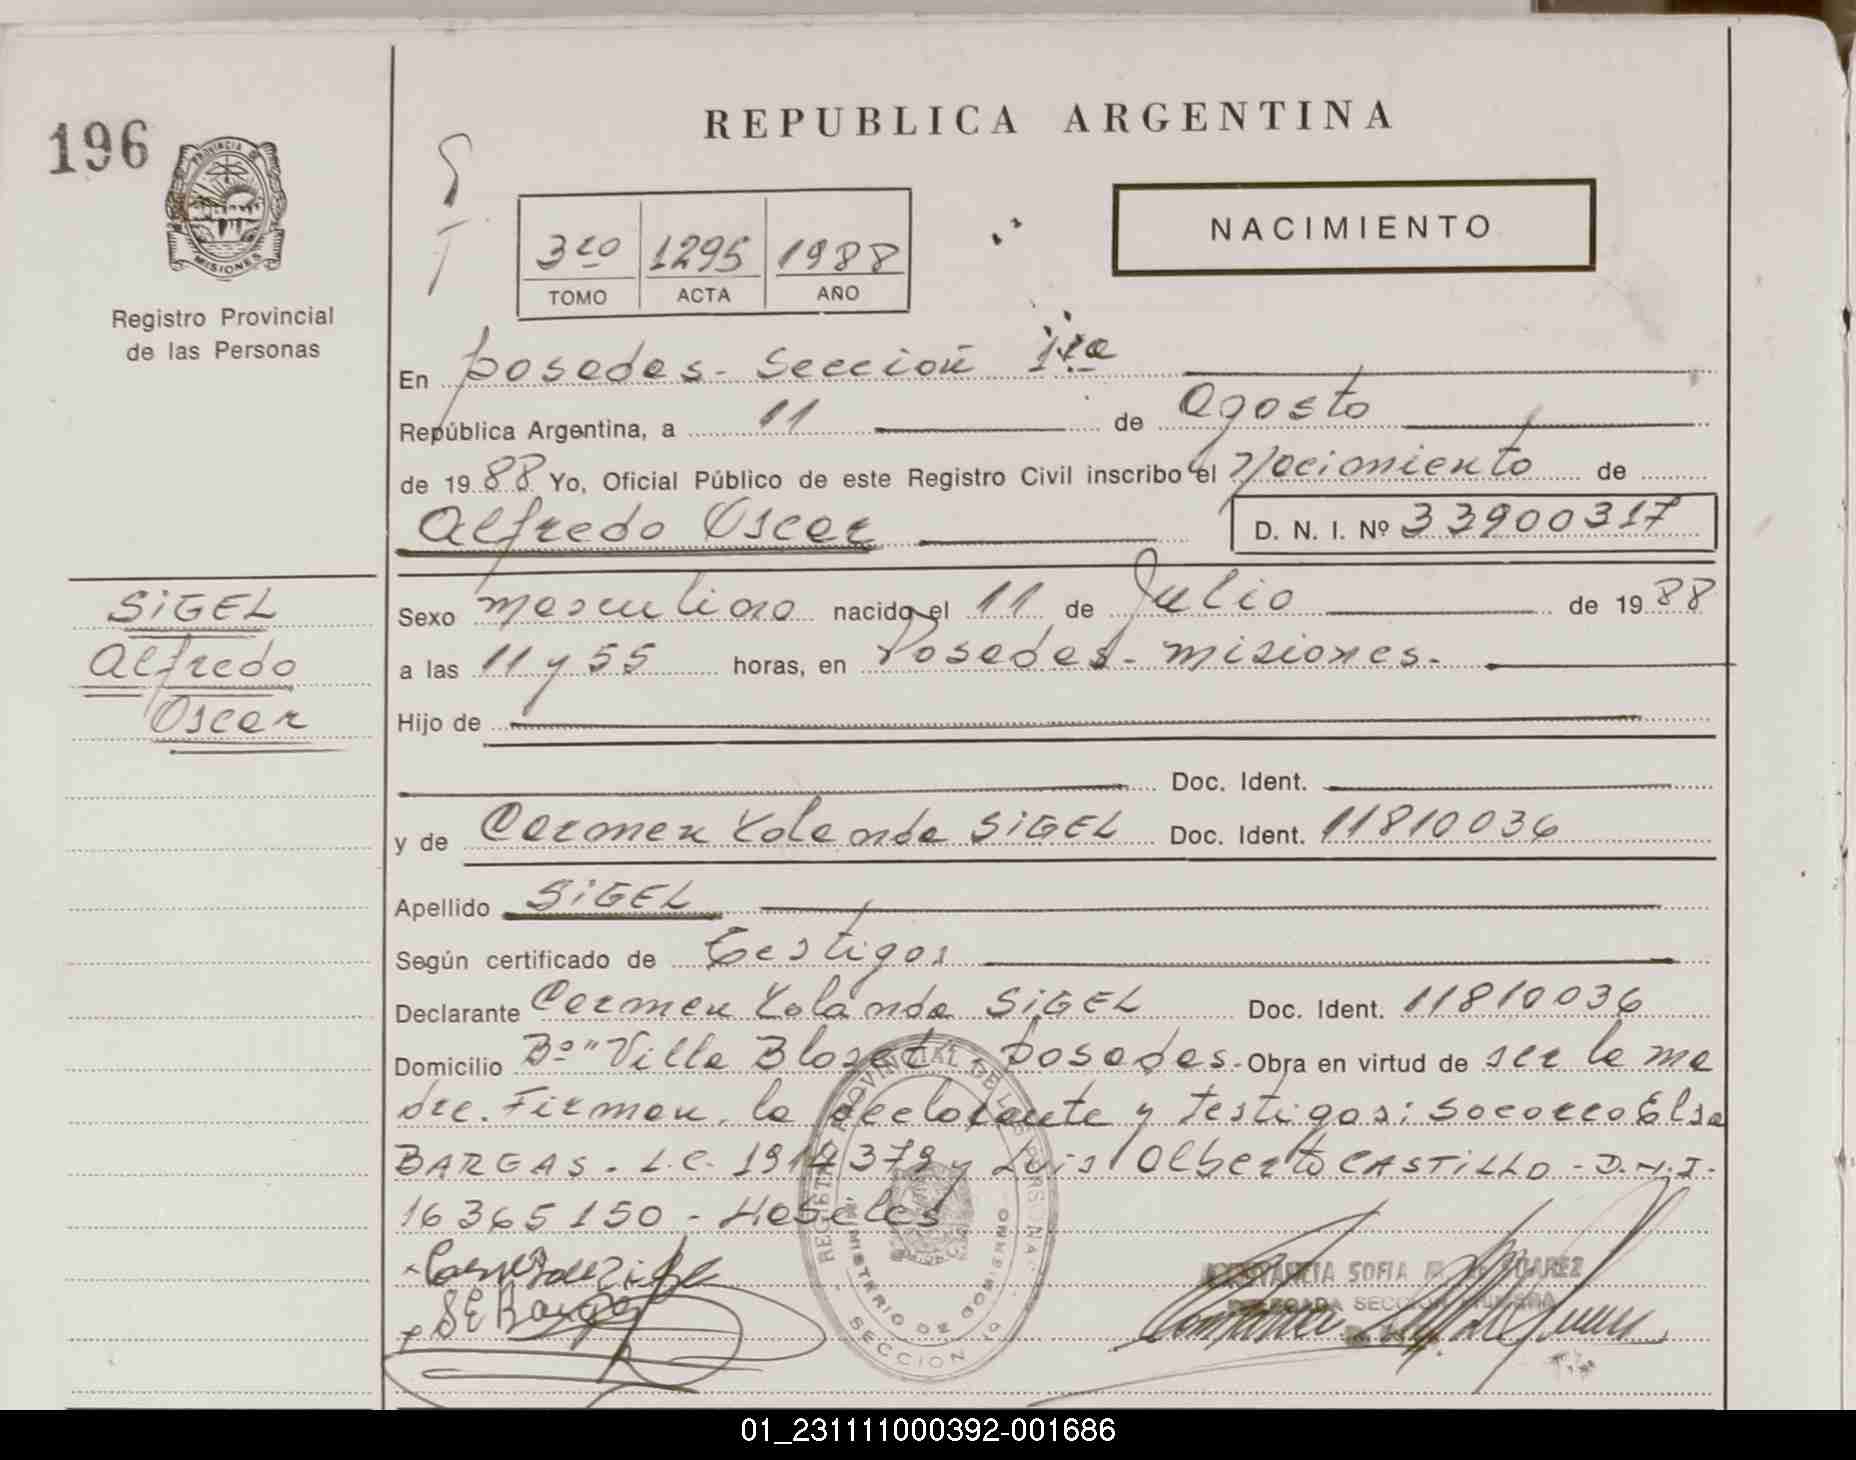 196
REPUBLICA ARGENTINA
PROVINCIA DE
MISIONES
Registro Provincial
de las Personas
NACIMIENTO
3ro 1295 1988
TOMO ACTA AÑO
En Posadas - Sección 1ra
República Argentina, a 11 de Agosto
de 1988 Yo, Oficial Público de este Registro Civil inscribo el Nacimiento de
Alfredo Oscar D. N. I. Nº 33900317
SiGEL
Alfredo
Oscar
Sexo masculino nacido el 11 de Julio de 1988
a las 11 y 55 horas, en Posadas - misiones.
Hijo de
Doc. Ident.
y de Carmen Yolanda SiGEL Doc. Ident. 11810036
Apellido SiGEL
Según certificado de Testigos
Declarante Carmen Yolanda SiGEL Doc. Ident. 11810036
Domicilio Bº "Villa Blosset" Posadas - Obra en virtud de ser la ma
dre. Firman, la declarante y testigos: Socorro Elsa
BARGAS. L.C. 1912379 y Luis Alberto CASTiLLO - D.N.I.
16365150 - Hábiles
REGISTRO PROVINCIAL DE LAS PERSONAS
MINISTERIO DE GOBIERNO
SECCION 1ª
S E Bargas
SOFIA M. de SUAREZ
DELEGADA SECCION PRIMERA
01_231111000392-001686